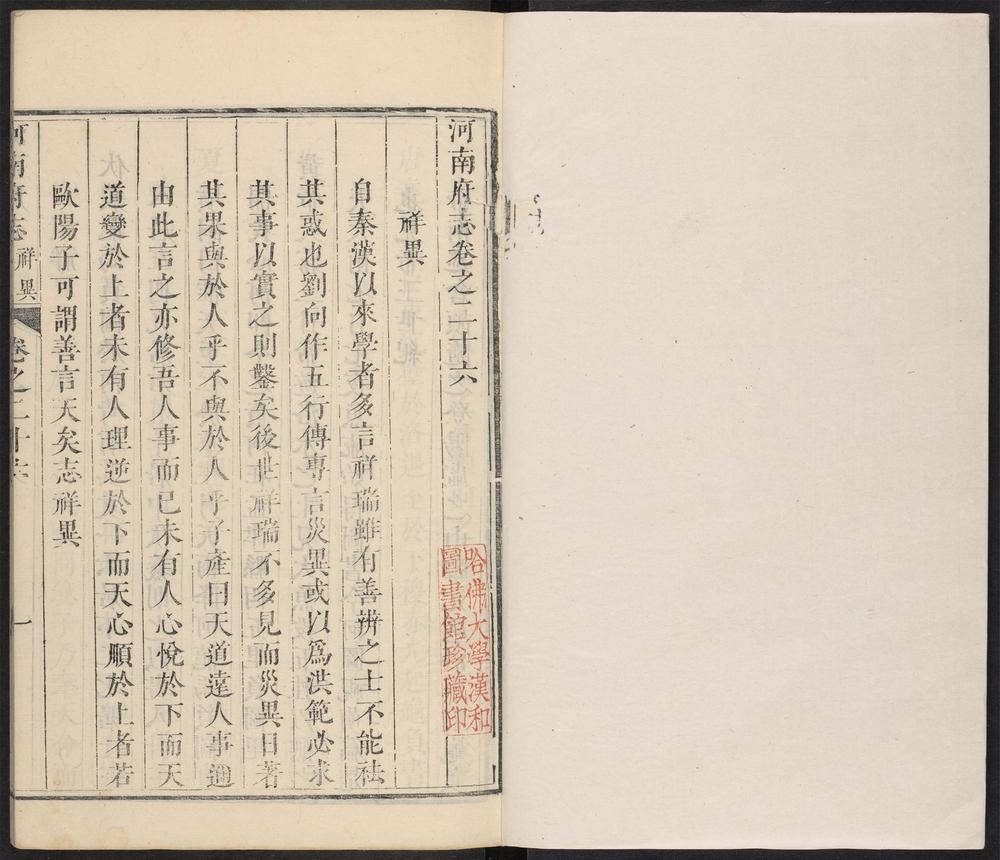 河南府志卷之二十六
祥異
自秦漢以來學者多言祥瑞雖有善辨之士不能祛
其惑也劉向作五行傳專言災異或以爲洪範必求
其事以實之則鑿矣後世祥瑞不多見而災異日著
其果與於人乎不與於人乎子產曰天道遠人事邇
由此言之亦修吾人事而已未有人心悅於下而天
道變於上者未有人理逆於下而天心順於上者若
歐陽子可謂善言天矣志祥異
河南府志
祥異
卷之二十六
一
哈佛大學漢和
圖書館珍藏印